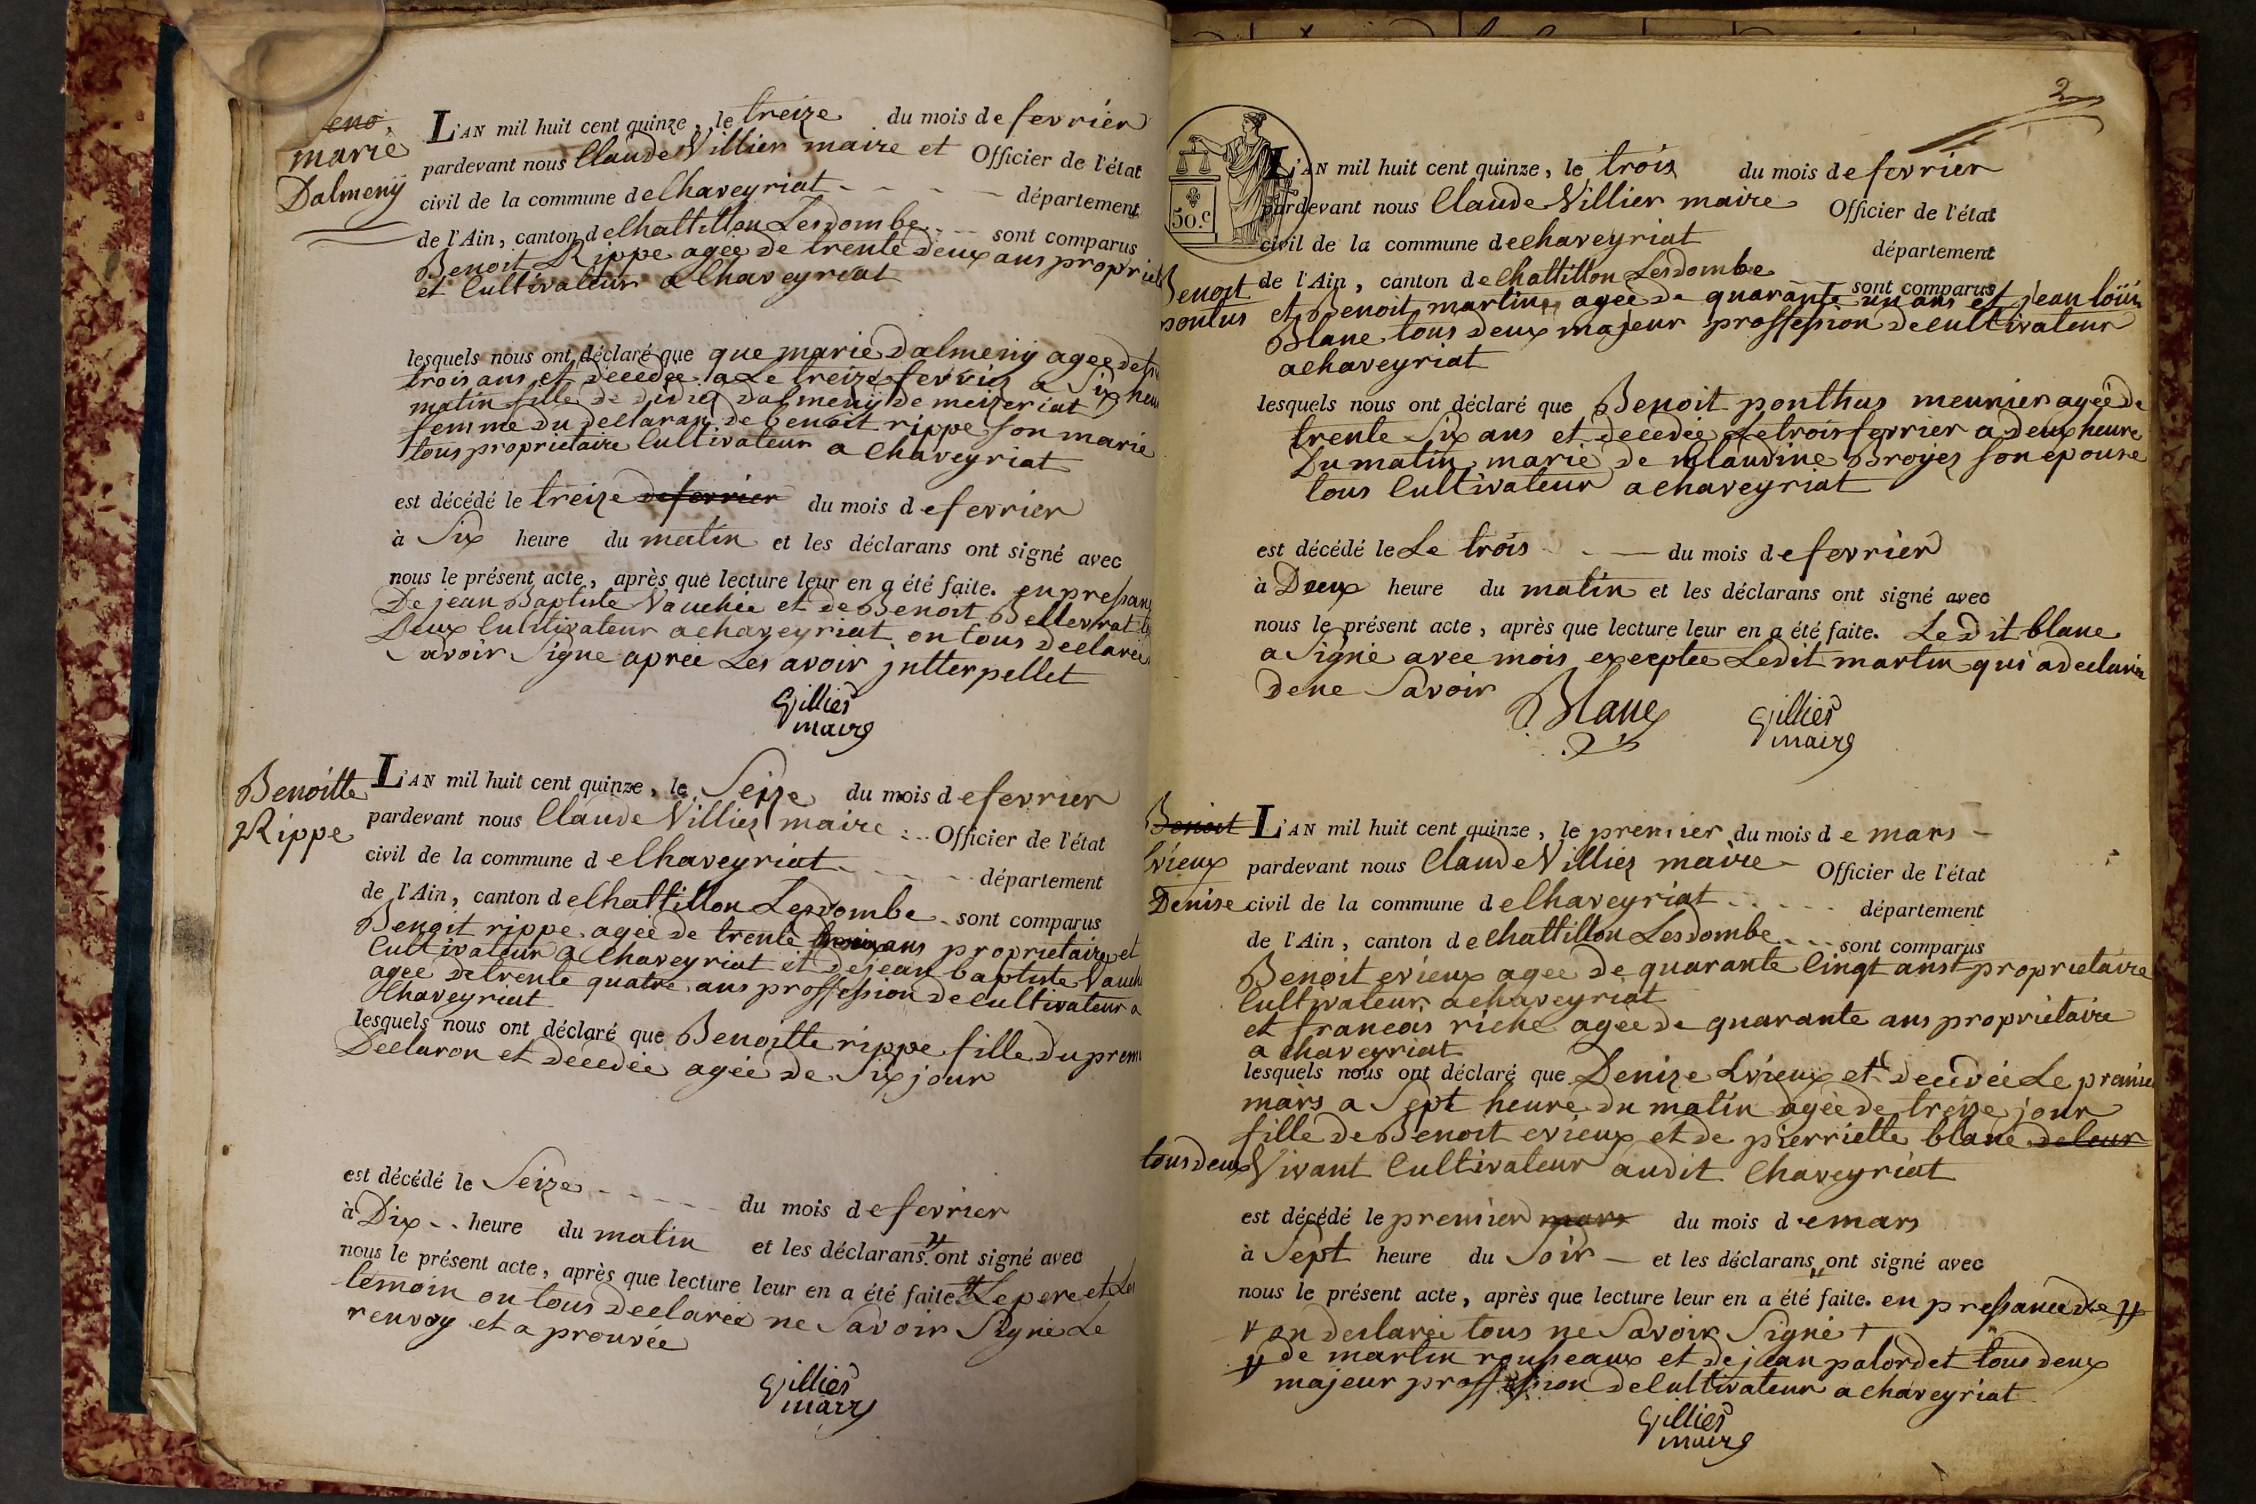 marie
Dalmenÿ
L'AN mil huit cent quinze, le treize du mois de fevrier
pardevant nous Claude Villier maire et Officier de l'état
civil de la commune de Chaveyriat département
de l'Ain, canton de Chattillon Lesdombe sont comparus
Benoit Rippe agée de trente deux ans
et Cultivateur a Chaveyriat
lesquels nous ont déclaré que que marie Dalmenÿ agee de
trois ans et décedée a Le treize fevrier a Six
matin fille de didier Dalmenÿ de meizeriat
femme du declaran de benoit rippe son marie
tous proprietaire Cultivateur a Chaveyriat
est décédé le treize de fevrier du mois de fevrier
à Six heure du matin et les déclarans ont signé avec
nous le présent acte, après que lecture leur en a été faite. en
De jean Baptiste Vauchée et de Benoit Bellevrat
Deux Cultivateur a chaveyriat on tous declaree
Savoir Signe apree Les avoir jntterpellet
Villier
maire
Benoitte
Rippe
L'AN mil huit cent quinze, le Seize du mois de fevrier
pardevant nous Claude Villier maire Officier de l'état
civil de la commune de Chaveyriat département
de l'Ain, canton de Chattillon Lesdombe sont comparus
Benoit rippe agée de trente ans proprietaire et
Cultivateur a Chaveyriat et de jean baptiste
agee de trente quatre ans proffession de cultivateur a
Chaveyriat
lesquels nous ont déclaré que Benoitte rippe fille du
Declaron et décedée agée de Six jour
est décédé le Seize du mois de fevrier
à Dix heure du matin et les déclarans ont signé avec
nous le présent acte, après que lecture leur en a été faite Le pere et Les
temoin on tous Declarée ne Savoir Signe Le
renvoy et a prouvée
Villier
maire
2
50.c
Benoit
pontus
L'AN mil huit cent quinze, le trois du mois de fevrier
pardevant nous Claude Villier maire Officier de l'état
civil de la commune de chaveyriat département
de l'Ain, canton de Chattillon Lesdombe sont comparus
et Benoit martin agee de quarante un ans et jean loüis
Blanc tous deux majeur proffession de cultivateur
a chaveyriat
lesquels nous ont déclaré que Benoit ponthus meunier agée de
trente Six ans et decedée Le trois fevrier a deux heure
Du matin marie de Claudine Broyer son epouse
tous Cultivateur a chaveyriat
est décédé le Le trois du mois de fevrier
à Deux heure du matin et les déclarans ont signé avec
nous le présent acte, après que lecture leur en a été faite. Le dit blanc
a Signé avec mois exceptee Ledit martin qui a declaree
de ne Savoir
Blanc
Villier
maire
Benoit
Evieux
Denise
L'AN mil huit cent quinze, le premier du mois de mars
pardevant nous Claude Villier maire Officier de l'état
civil de la commune de Chaveyriat département
de l'Ain, canton de Chattillon Lesdombe sont comparus
Benoit evieux agee de quarante Cinqt anst proprietaire
Cultivateur a chaveyriat
et francois riche agée de quarante ans proprietaire
a chaveyriat
lesquels nous ont déclaré que Denize Evieux et decedée Le premier
mars a Sept heure du matin agée de treize jour
fille de Benoit evieux et de pierriette blanc de leur
tous deux Vivant Cultivateur audit Chaveyriat
est décédé le premier mars du mois de mars
à Sept heure du Soir et les déclarans ont signé avec
nous le présent acte, après que lecture leur en a été faite. en pressance de
on declarée tous ne Savoir Signé
de martin rousseaux et de jean palordet tous deux
majeur proffession de Cultivateur a chaveyriat
Villier
maire